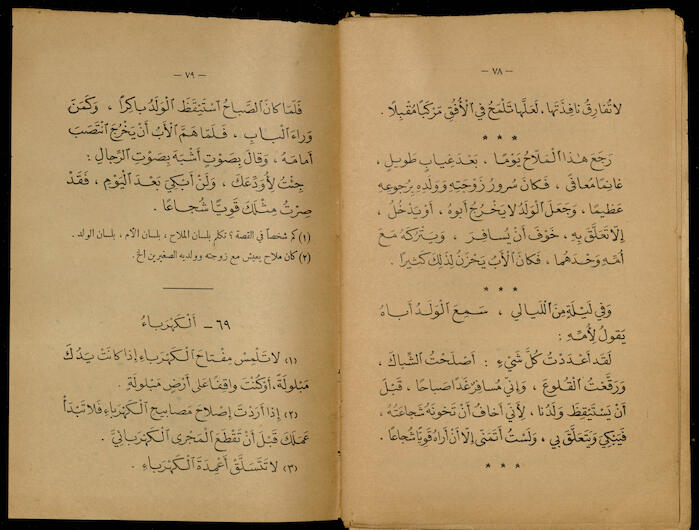 — ٧٨ —
لَا تُفَارِقُ نَافِذَتَهَا، لَعَلَّهَا تَلْمَحُ فِي الْأُفُقِ مَرْكَبًا مُقْبِلًا .
* * *
رَجَعَ هٰذَا الْمَلَّاحُ يَوْمًا ، بَعْدَ غِيَابٍ طَوِيلٍ ،
غَانِمًا مُعَافًى ، فَكَانَ سُرُورُ زَوْجَتِهِ وَوَلَدِهِ بِرُجُوعِهِ
عَظِيمًا ، وَجَعَلَ الْوَلَدُ لَا يَخْرُجُ أَبُوهُ ، أَوْ يَدْخُلُ ،
إِلَّا تَعَلَّقَ بِهِ ، خَوْفَ أَنْ يُسَافِرَ ، وَيَتْرُكَهُ مَعَ
أُمِّهِ وَحْدَهُمَا ، فَكَانَ الْأَبُ يَحْزَنُ لِذٰلِكَ كَثِيرًا .
* * *
وَفِي لَيْلَةٍ مِنَ اللَّيَالِي ، سَمِعَ الْوَلَدُ أَبَاهُ
يَقُولُ لِأُمِّهِ :
لَقَدْ أَعْدَدْتُ كُلَّ شَيْءٍ : أَصْلَحْتُ الشِّبَاكَ ،
وَرَقَّعْتُ الْقُلُوعَ ، وَإِنِّي مُسَافِرٌ غَدًا صَبَاحًا ، قَبْلَ
أَنْ يَسْتَيْقِظَ وَلَدُنَا ، لِأَنِّي أَخَافُ أَنْ تَخُونَهُ شَجَاعَتُهُ ،
فَيَبْكِيَ وَيَتَعَلَّقَ بِي ، وَلَسْتُ أَتَمَنَّى إِلَّا أَنْ أَرَاهُ قَوِيًّا شُجَاعًا .
* * *
— ٧٩ —
فَلَمَّا كَانَ الصَّبَاحُ اسْتَيْقَظَ الْوَلَدُ بَاكِرًا ، وَكَمَنَ
وَرَاءَ الْبَابِ ، فَلَمَّا هَمَّ الْأَبُ أَنْ يَخْرُجَ انْتَصَبَ
أَمَامَهُ ، وَقَالَ بِصَوْتٍ أَشْبَهَ بِصَوْتِ الرِّجَالِ :
جِئْتُ لِأُوَدِّعَكَ ، وَلَنْ أَبْكِيَ بَعْدَ الْيَوْمِ ، فَقَدْ
صِرْتُ مِثْلَكَ قَوِيًّا شُجَاعًا .
(١) كم شخصاً في القصة ؟ تكلم بلسان الملاح ، بلسان الأم ، بلسان الولد .
(٢) كان ملاح يعيش مع زوجته وولديه الصغيرين الخ.
٦٩ - الْكَهْرَبَاءُ
(١) لَا تَلْمِسْ مِفْتَاحَ الْكَهْرَبَاءِ إِذَا كَانَتْ يَدُكَ
مَبْلُولَةً، أَوْ كُنْتَ وَاقِفًا عَلَى أَرْضٍ مَبْلُولَةٍ .
(٢) إِذَا أَرَدْتَ إِصْلَاحَ مَصَابِيحِ الْكَهْرَبَاءِ فَلَا تَبْدَأْ
عَمَلَكَ قَبْلَ أَنْ تَقْطَعَ الْمَجْرَى الْكَهْرَبَائِيَّ .
(٣) لَا تَتَسَلَّقْ أَعْمِدَةَ الْكَهْرَبَاءِ .